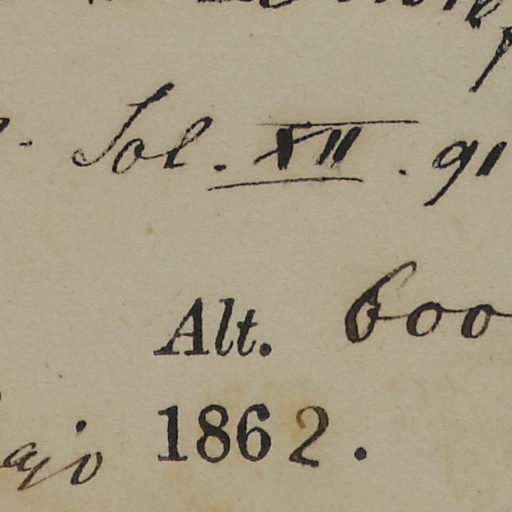 Sol. XII. 91
Alt. 600
ajo 1862.